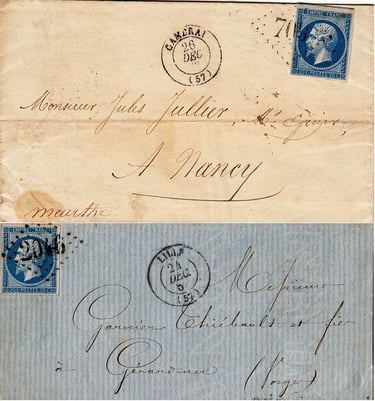 EMPIRE FRANC.
704
CAMBRAI
26
DEC
(57)
Monsieur Jules Jullier,
A Nancy
meurthe
EMPIRE FRANC.
2046
20 C. POSTES 20 C.
LILLE
24
DEC.
(57)
Messieurs
Garnier Thiébault et
à Gérardmer (Vosges)